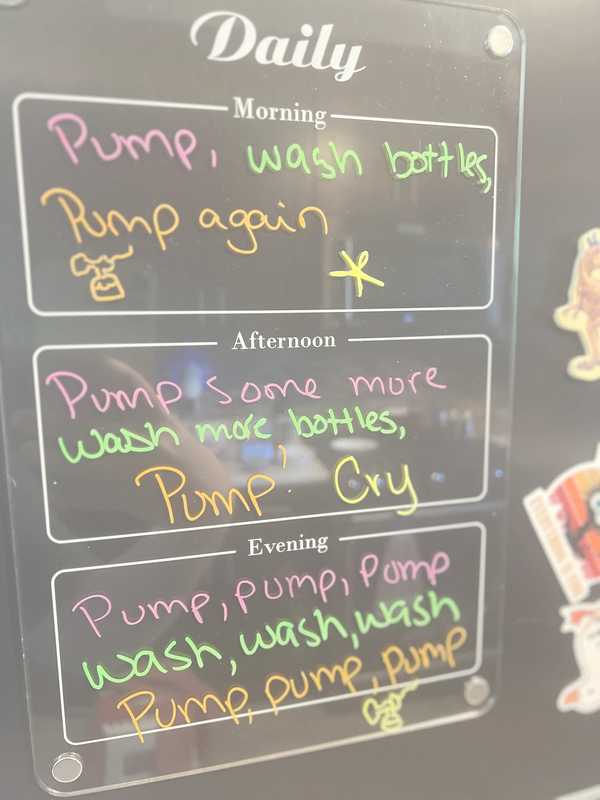 Daily
Morning
Pump, wash bottles,
Pump again
Afternoon
Pump some more
wash more bottles,
Pump! Cry
Evening
Pump, pump, Pump
wash, wash, wash
Pump, pump, pump